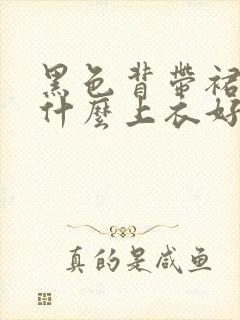 黑色背帶裙
什麼上衣好
真的是咸鱼